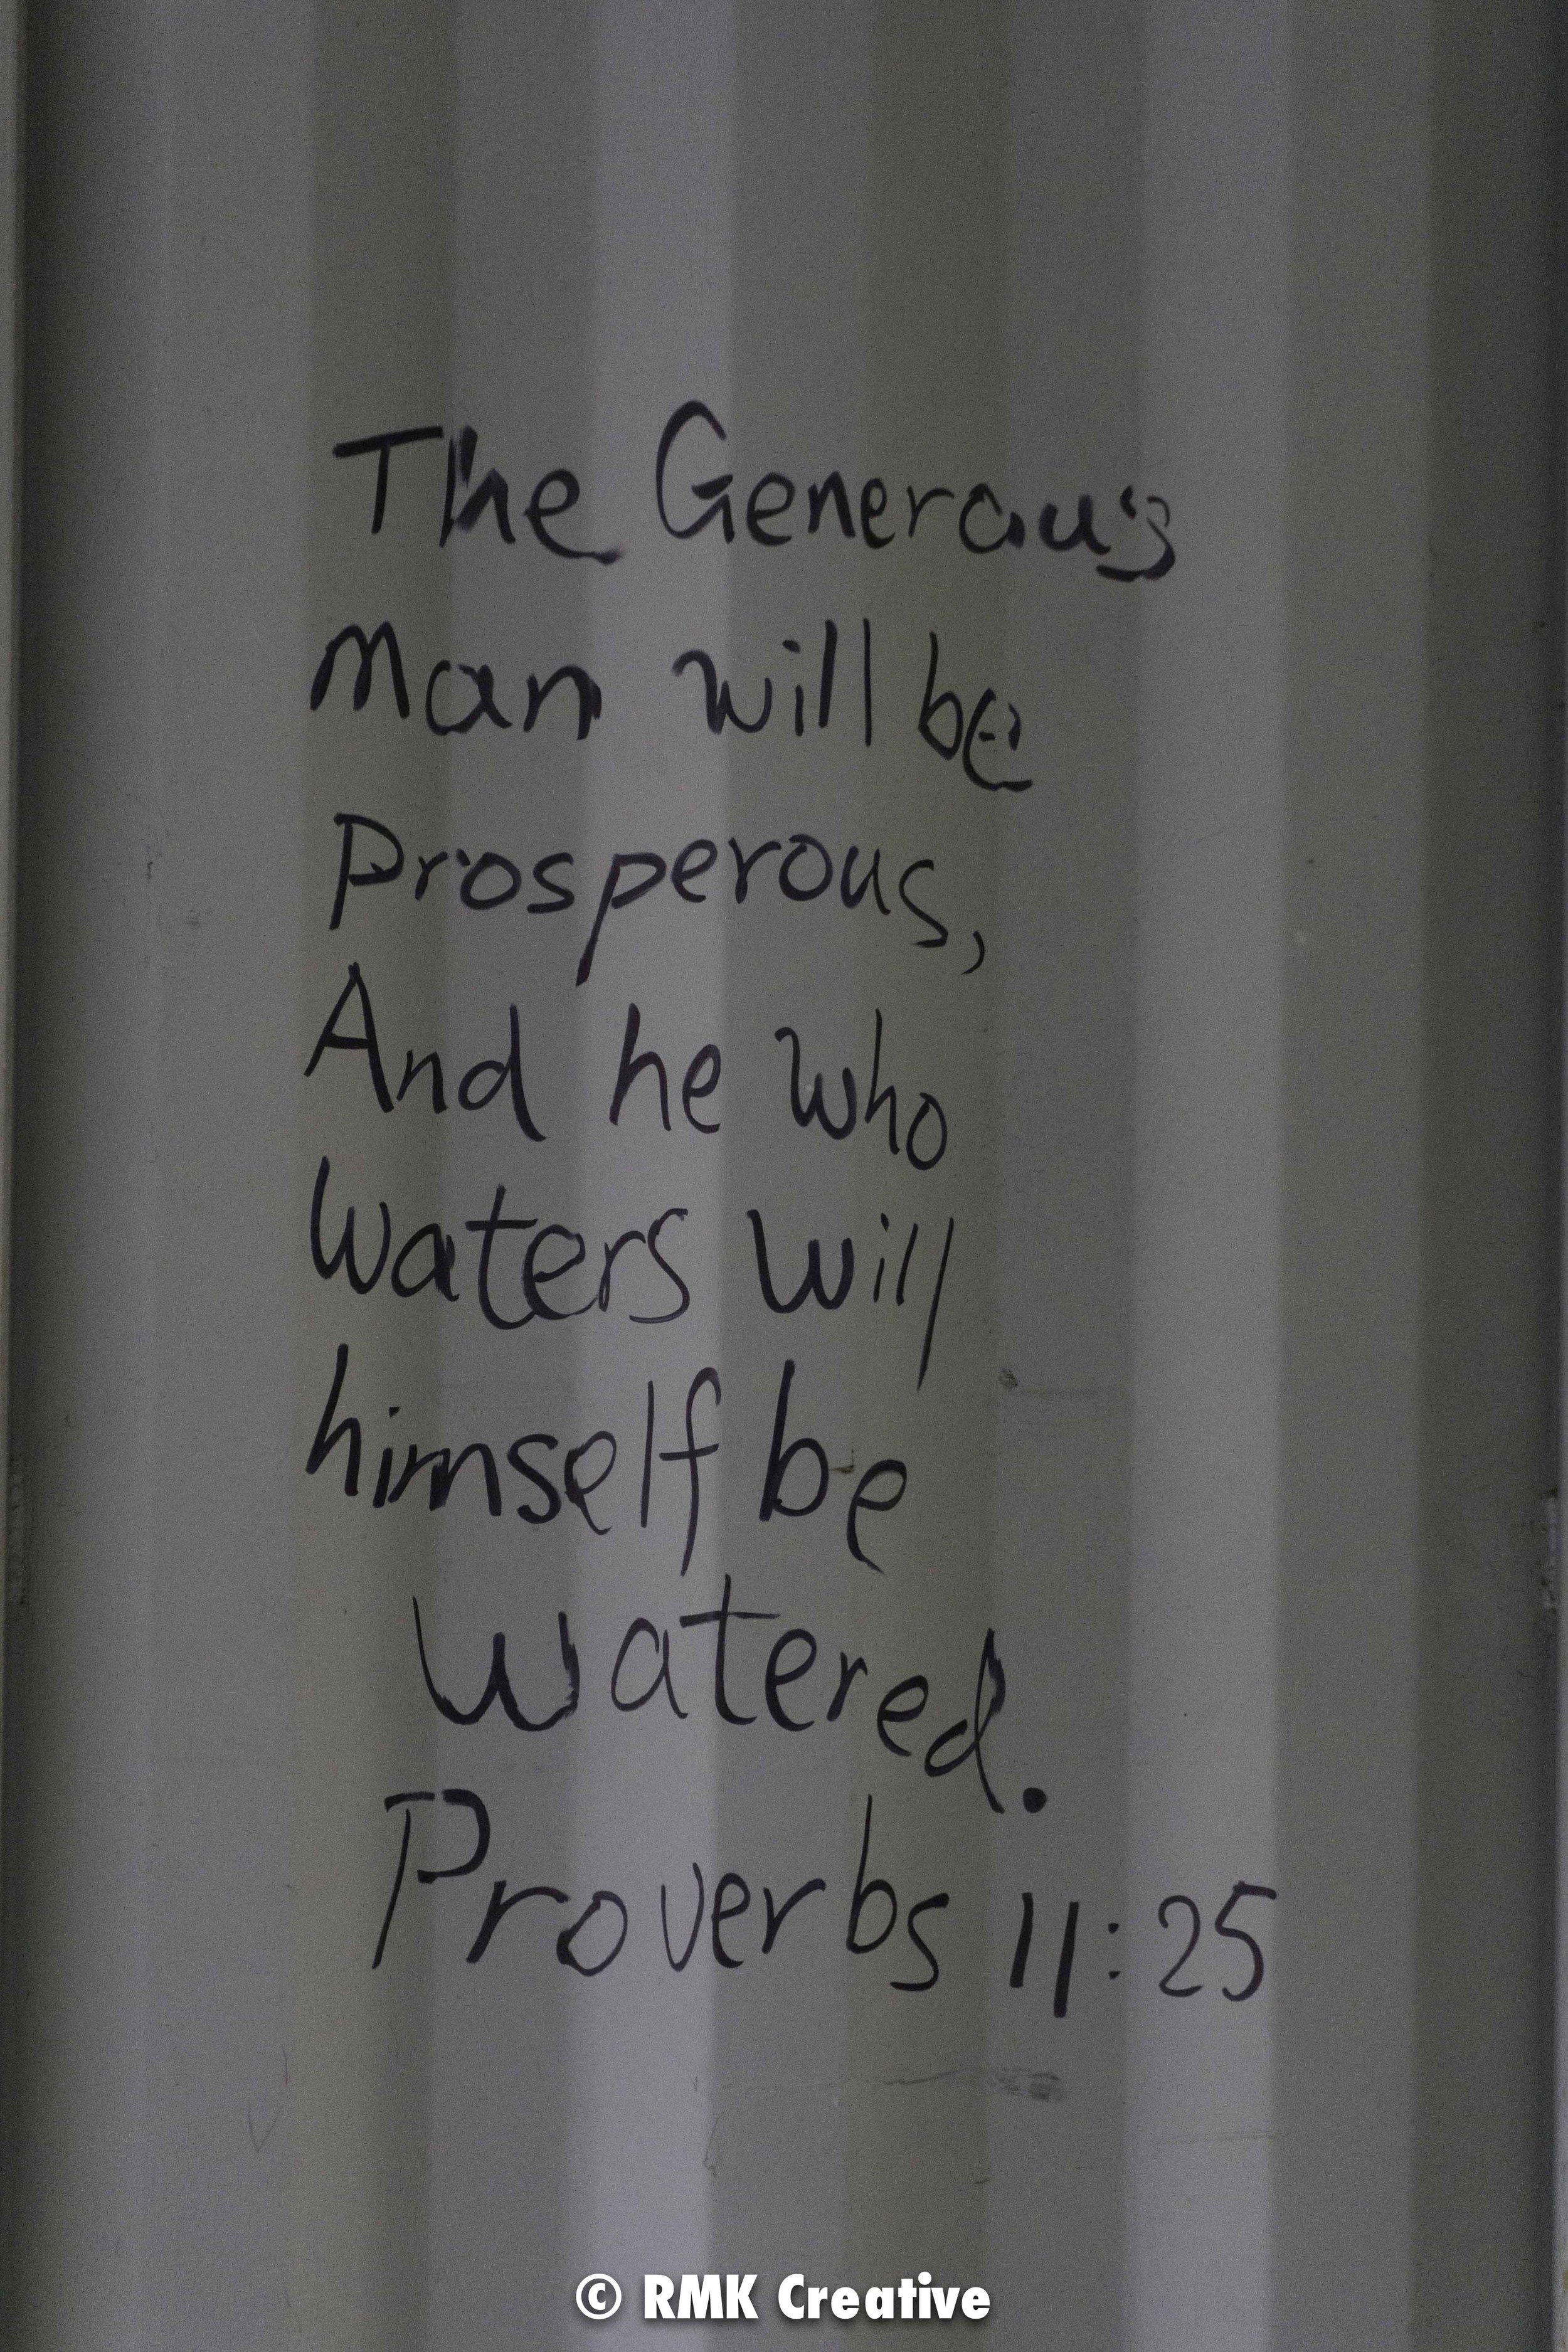 The Generous
Man will be
Prosperous,
And he who
Waters will
himself be
Watered.
Proverbs 11:25
© RMK Creative